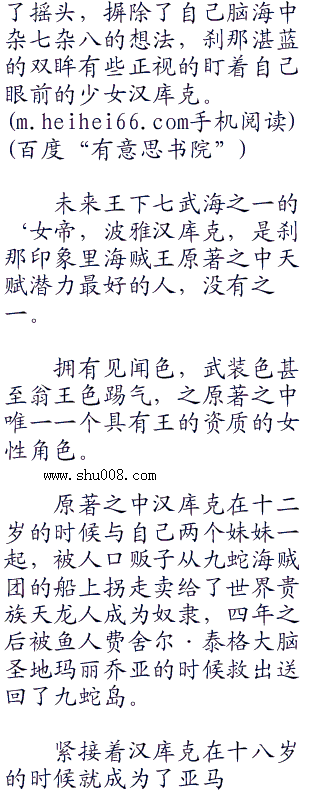 了摇头，摒除了自己脑海中
杂七杂八的想法，刹那湛蓝
的双眸有些正视的盯着自己
眼前的少女汉库克。
(m.heihei66.com手机阅读)
(百度“有意思书院”)
未来王下七武海之一的
‘女帝，波雅汉库克，是刹
那印象里海贼王原著之中天
赋潜力最好的人，没有之
一。
拥有见闻色，武装色甚
至翁王色踢气，之原著之中
唯一一个具有王的资质的女
性角色。
www.shu008.com
原著之中汉库克在十二
岁的时候与自己两个妹妹一
起，被人口贩子从九蛇海贼
团的船上拐走卖给了世界贵
族天龙人成为奴隶，四年之
后被鱼人费舍尔·泰格大脑
圣地玛丽乔亚的时候救出送
回了九蛇岛。
紧接着汉库克在十八岁
的时候就成为了亚马